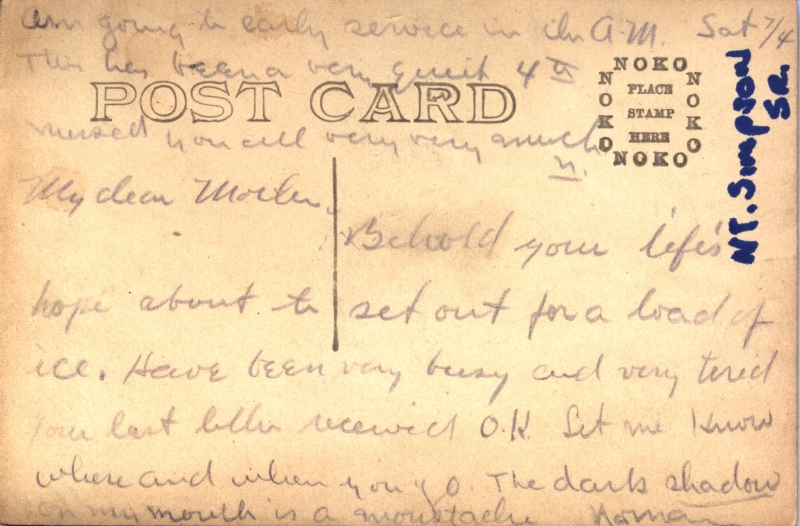 Am going to early service in the A.M. Sat 7/4
This has been a very quiet 4th
POST CARD
missed you all very very much
N.
NOKO
NOKO
PLACE
STAMP
HERE
NOKO
NOKO
NT. Simpson
SR.
My dear Mother,
Behold your life's
hope about to set out for a load of
ice. Have been very busy and very tired
Your last letter received O.K. Let me know
where and when you go. The dark shadow
on my mouth is a moustache